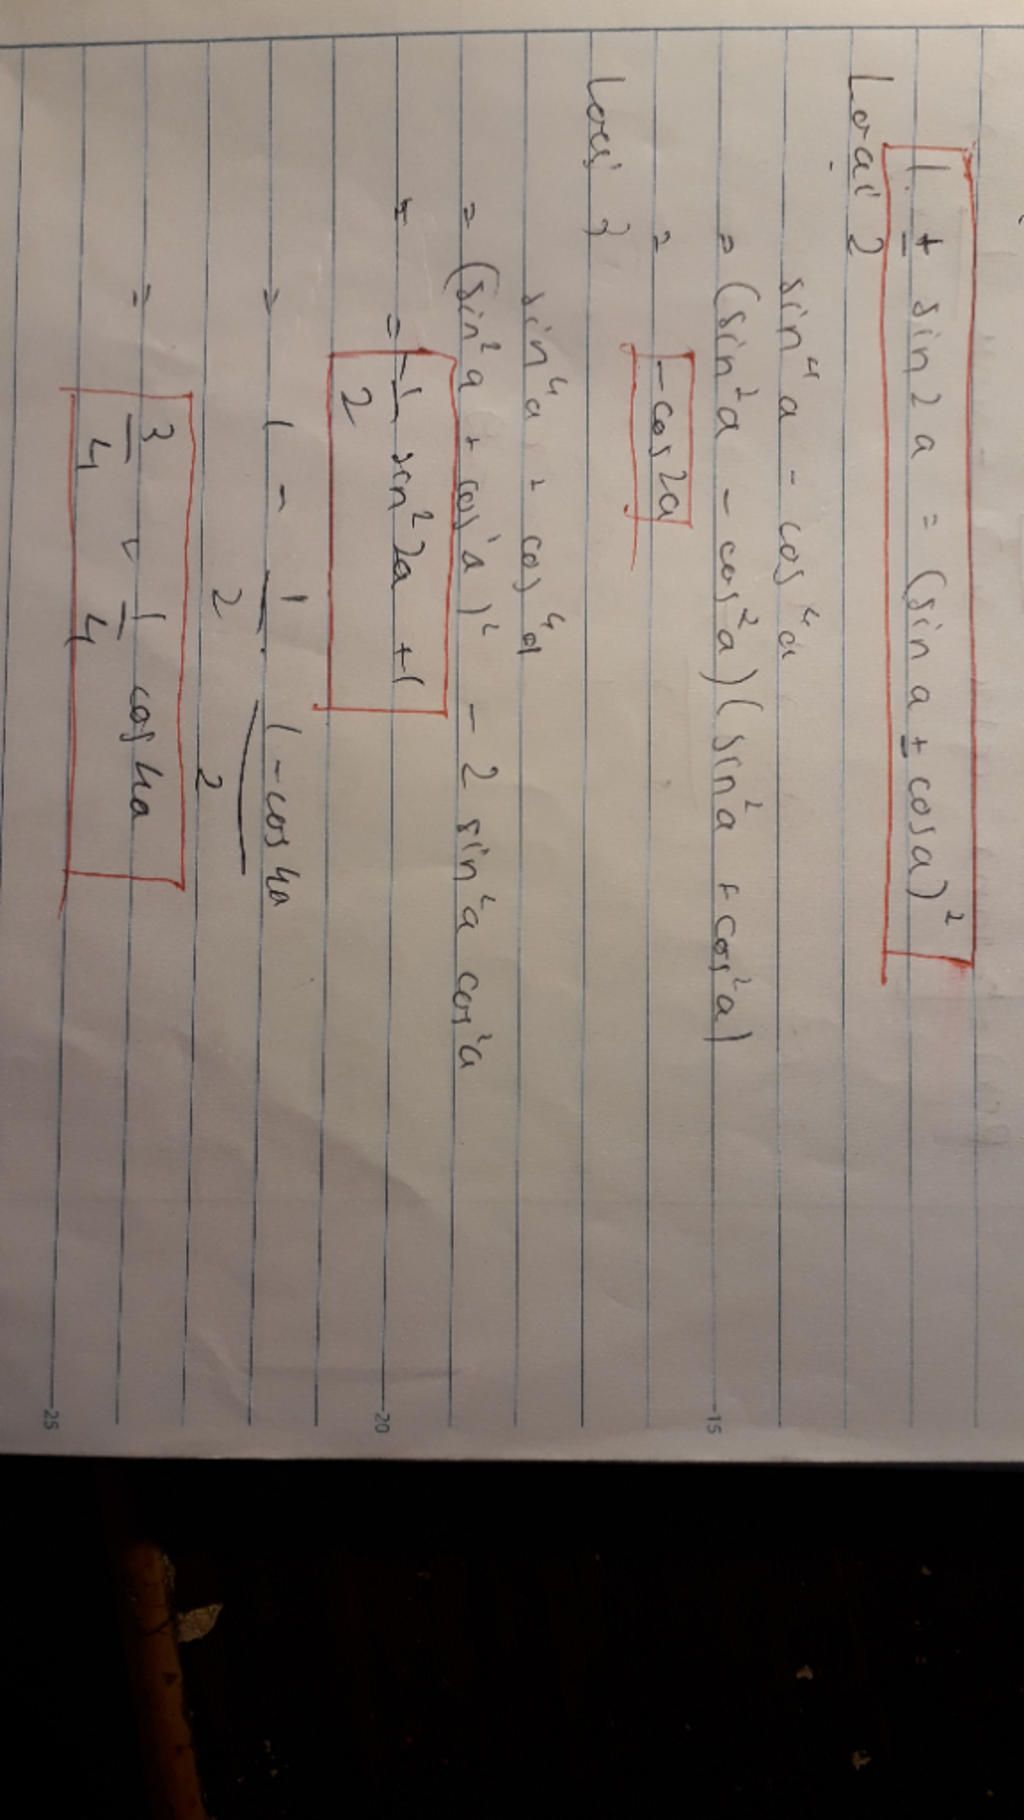 1 ± sin2a = (sin a ± cosa)²
Loại 2
sin⁴a - cos⁴a
= (sin²a - cos²a)(sin²a + cos²a)
= -cos2a
Loại 3
sin⁴a + cos⁴a
= (sin²a + cos²a)² - 2 sin²a cos²a
= -1/2 sin²2a +1
= 1 - 1/2 . (1-cos4a)/2
= 3/4 + 1/4 cos4a
15
20
25